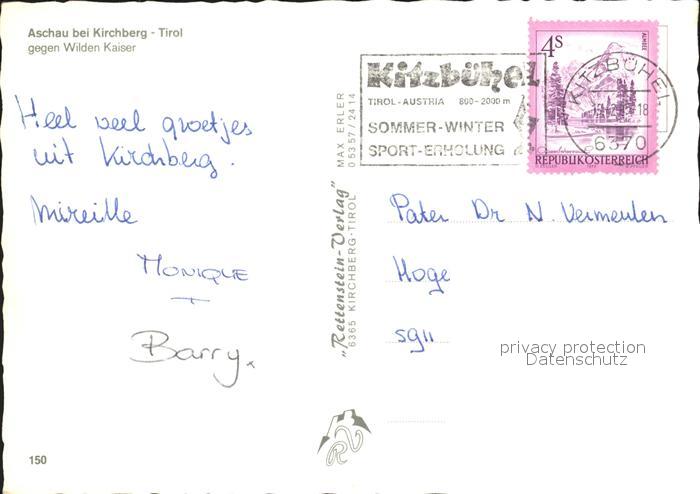 Aschau bei Kirchberg - Tirol
gegen Wilden Kaiser
Heel veel groetjes
uit Kirchberg.
Mireille
MONIQUE
Barry.
150
MAX ERLER
05357/2414
„Rettenstein-Verlag"
6365 KIRCHBERG-TIROL
RV
Kitzbühel
TIROL-AUSTRIA 800-2000 m
SOMMER-WINTER
SPORT-ERHOLUNG
4S
ALMSEE
REPUBLIK ÖSTERREICH
KITZBÜHEL
6370
Pater Dr N. Vermeulen
Hoge
privacy protection
Datenschutz